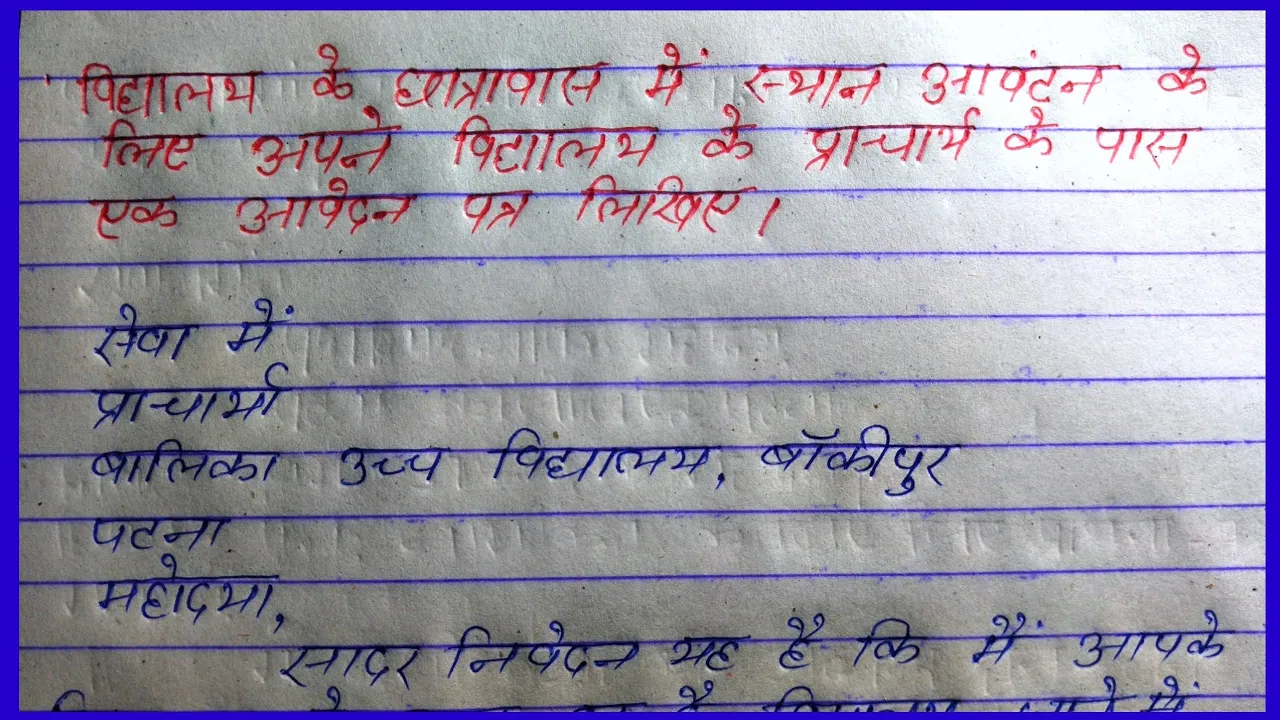 विद्यालय के छात्रावास में स्थान आवंटन के
लिए अपने विद्यालय के प्राचार्य के पास
एक आवेदन पत्र लिखिए।
सेवा में
प्राचार्या
बालिका उच्च विद्यालय, बॉकीपुर
पटना
महोदया,
सादर निवेदन यह है कि मैं आपके